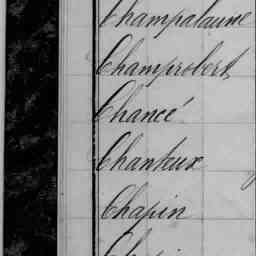 Champalaune
Champrobert
Chancé
Chanteux
Chapin